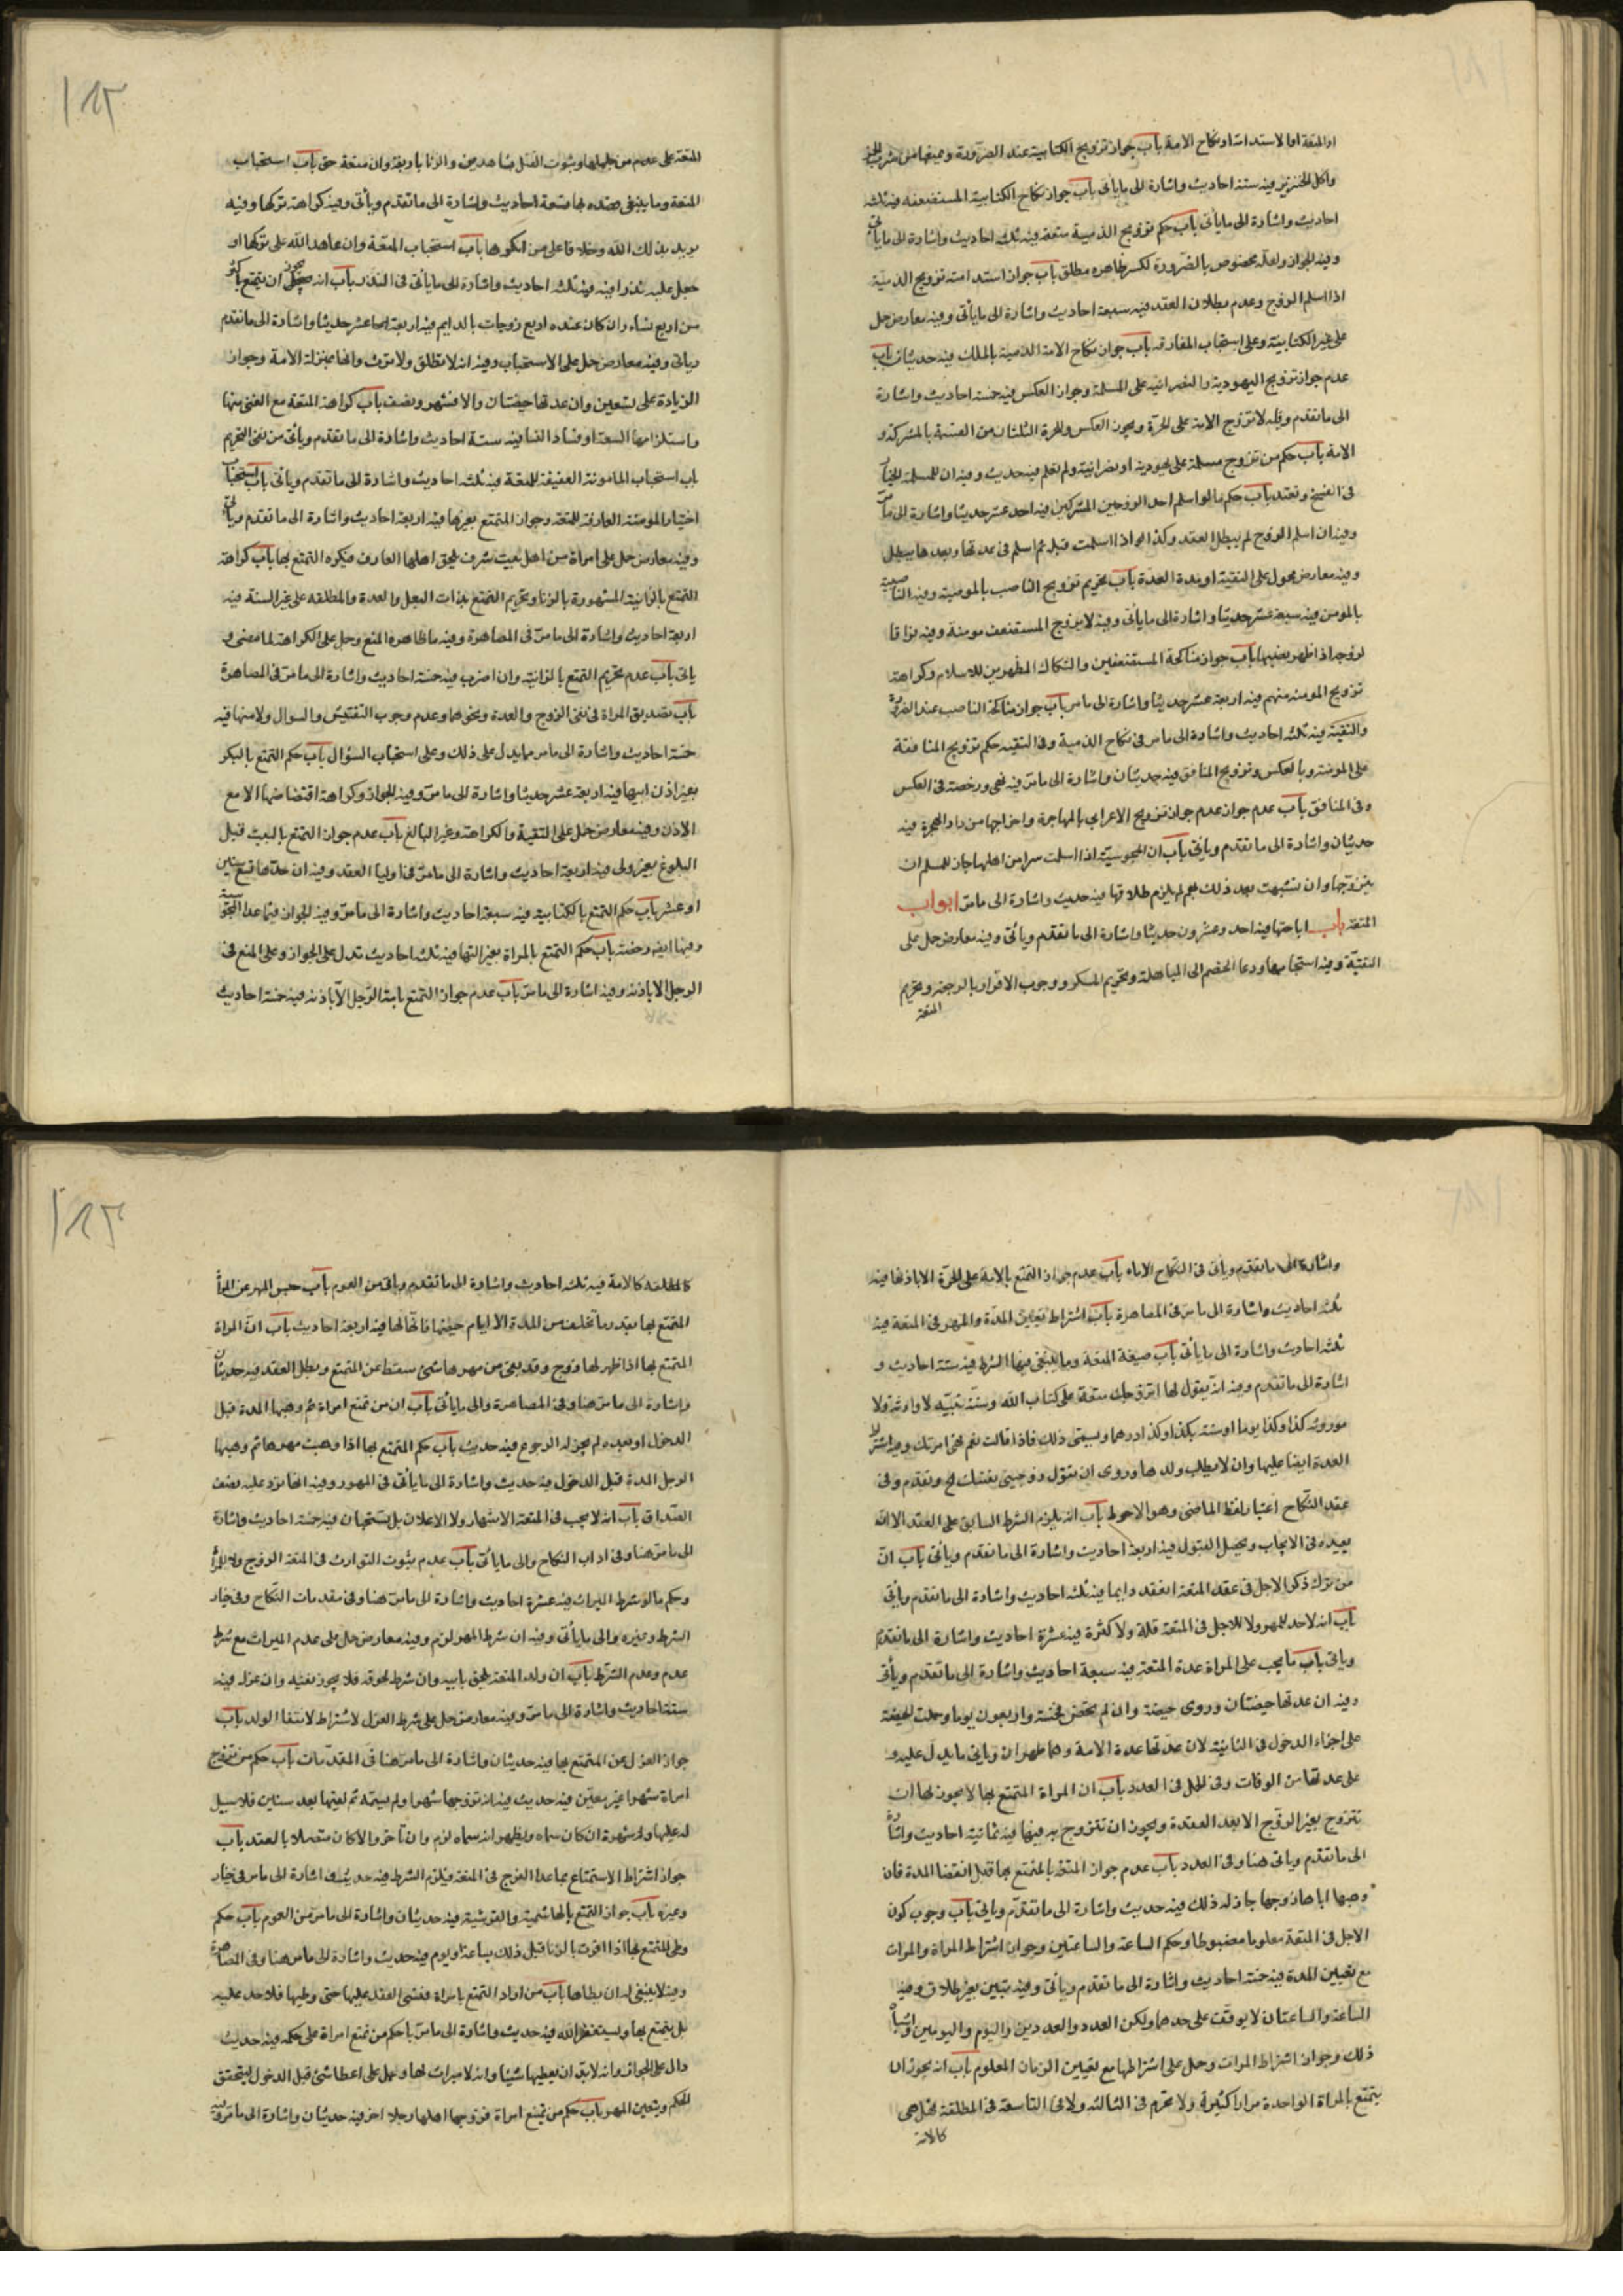 او المتعة او الاستدامة او نكاح الامة باب جواز تزويج الكتابية عند الضرورة ويمنعها من شرب الخمر
واكل الخنزير فيه ستة احاديث واشارة الى ما يأتى باب جواز نكاح الكتابية المستضعفه فيه ثلثه
احاديث واشارة الى ما يأتى باب حكم تزويج الذمية متعة فيه ثلثه احاديث واشارة الى ما يأتى
وفيه الجواز ولعله مخصوص بالضرورة لكن ظاهره مطلق باب جواز استدامة تزويج الذمية
اذا اسلم الزوج وعدم بطلان العقد فيه سبعة احاديث واشارة الى ما يأتى وفيه معارض حمل
على غير الكتابية وعلى استحباب المفارقه باب جواز نكاح الامة الذمية بالملك فيه حديثان باب
عدم جواز تزويج اليهودية والنصرانية على المسلمة وجواز العكس فيه خمسة احاديث واشارة
الى ما تقدم وفيه لا تزوج الامة على الحرة ويجوز العكس وللحرة الثلثان من القسمة بالمشركة و
الامة باب حكم من تزوج مسلمة على يهودية او نصرانية ولم تعلم فيه حديث وفيه ان للمسلمة الخيار
فى الفسخ وتعتد باب حكم ما لو اسلم احد الزوجين المشركين فيه احد عشر حديثا واشارة الى ما مر
وفيه ان اسلم الزوج لم يبطل العقد وكذا لو اذا اسلمت قبله ثم اسلم فى عدتها وبعدها يبطل
وفيه معارض محمول على التقية او مدة العدة باب تحريم تزويج الناصب بالمومنة وفيه الناصبية
بالمومن فيه سبعة عشر حديثا واشارة الى ما يأتى وفيه لا يتزوج المستضعف مومنة وفيه
لزوجها اذا ظهر نصبها باب جواز مناكحة المستضعفين والشكاك المظهرين للاسلام وكراهة
تزويج المومنه منهم فيه اربعة عشر حديثا واشارة الى ما مر باب جواز مناكحة الناصب عند الضرورة
والتقية فيه ثلثه احاديث واشارة الى ما مر فى نكاح الذمية وفى التقيه حكم تزويج المنافقة
على المومنة وبالعكس وتزويج المنافق فيه حديثان واشارة الى ما مر فيه نهى ورخصة فى العكس
وفى المنافق باب عدم جواز عدم جواز تزويج الاعرابي بالمهاجرة واخراجها من دار الهجرة فيه
حديثان واشارة الى ما تقدم ويأتى باب ان المجوسية اذا اسلمت سرا من اهلها جاز للمسلم ان
يتزوجها وان بعد ذلك لم يلزم طلاقها فيه حديث واشارة الى ما مر ابواب
المتعة باب اباحتها فيه احد وعشرون حديثا واشارة الى ما تقدم ويأتى وفيه معارض حمل على
التقية وفيه استحبابها ودعا الخصم الى المباهلة وتحريم المسكر ووجوب الاقرار بالرجعة وتحريم
المتعة
المتعة على عدم من جهلها وثبوت القتل بشاهدين والزنا باربعة وان متعة حق باب استحباب
المتعة وما ينبغى قصده بها تسعة احاديث واشارة الى ما تقدم ويأتى وفيه كراهة تركها وفيه
يريد بذلك الله وخلافا على من انكرها باب استحباب المتعة وان عاهد الله على تركها او
جعل عليه نذرا فيه ثلثه احاديث واشارة الى ما يأتى فى النذر باب انه يجوز ان يتمتع باكثر
من اربع نساء وان كان عنده اربع زوجات بالدايم فيه اربعة عشر حديثا واشارة الى ما تقدم
وياتى وفيه معارض حمل على الاستحباب وفيه انه لا تطلق ولا ترث وانها بمنزلة الامة وجواز
الزيادة على سبعين وان عدتها حيضتان والا فشهر ونصف باب كراهة المتعة مع الغنى عنها
واستلزامها الشنعة او فساد النسا فيه ستة احاديث واشارة الى ما تقدم ويأتى من نفى التحريم
باب استحباب المامونة العفيفة للمتعة فيه ثلثه احاديث واشارة الى ما تقدم ويأتى باب استحباب
اختيار المومنه العارفة للمتعه وجواز التمتع بغيرها فيه اربعة احاديث واشارة الى ما تقدم ويأتى
وفيه معارض حمل على امراة من اهل بيت شرف يلحق اهلها العار فيكره التمتع بها باب كراهة
التمتع بالزانية المشهورة بالزنا وتحريم التمتع بذات البعل والعدة والمطلقه على غير السنة فيه
اربعة احاديث واشارة الى ما مر فى المصاهرة وفيه ما ظاهره المنع وحمل على الكراهة لما مضى و
ياتى باب عدم تحريم التمتع بالزانية وان اصرت فيه خمسة احاديث واشارة الى ما مر فى المصاهرة
باب تصديق المراة فى نفى الزوج والعدة ونحوهما وعدم وجوب التفتيش والسوال ولا منها فيه
خمسة احاديث واشارة الى ما مر مما يدل على ذلك وعلى استحباب السؤال باب حكم التمتع بالبكر
بغير اذن ابيها فيه اربعة عشر حديثا واشارة الى ما مر وفيه الجواز وكراهة اقتضاضها الا مع
الاذن وفيه معارض حمل على التقية والكراهة وغير البالغ باب عدم جواز التمتع بالبنت قبل
البلوغ بغير ولى فيه اربعة احاديث واشارة الى ما مر فى اوليا العقد وفيه ان حدها تسع سنين
او عشر باب حكم التمتع بالكتابية فيه سبعة احاديث واشارة الى ما مر وفيه الجواز فيما عدا المجوسية
وفيها ايضا رخصة باب حكم التمتع بالمراة بغير فيه ثلثه احاديث تدل على الجواز وعلى المنع فى
الرجل الا باذنه وفيه اشارة الى ما مر باب عدم جواز التمتع بامة الرجل الا باذنه فيه خمسة احاديث
واشارة الى ما تقدم ويأتى فى النكاح الاماء باب عدم جواز التمتع بالامة على الحرة الا باذنها فيه
ثلثه احاديث واشارة الى ما مر فى المصاهرة باب اشتراط تعيين المدة والمهر فى المتعة فيه
ثلثه احاديث واشارة الى ما يأتى باب صيغة المتعة وما ينبغى فيها من الشرط فيه ستة احاديث و
اشارة الى ما تقدم وفيه انه يقول لها اتزوجك متعة على كتاب الله وسنة نبيه لا وارثه ولا
موروثه كذا وكذا يوما او سنة بكذا وكذا درهما ويسمى ذلك فاذا قالت نعم فهى امرتك وفيه اشتراط
العدة ايضا عليها وان لا يطلب ولدها وروى ان يقول زوجينى نفسك الخ وتقدم وفى
عقد النكاح اعتبار لفظ الماضى وهو الاحوط باب انه يلزم الشرط السابق على العقد الا انه
يعيده فى الايجاب ويحصل القبول فيه اربعة احاديث واشارة الى ما تقدم ويأتى باب ان
من ترك ذكر الاجل فى عقد المتعة انعقد دايما فيه ثلثه احاديث واشارة الى ما تقدم ويأتى
باب انه لا حد للمهر ولا للاجل فى المتعة قلة ولا كثرة فيه عشرة احاديث واشارة الى ما تقدم
وياتى باب ما يجب على المراة عدة المتعة فيه سبعة احاديث واشارة الى ما تقدم ويأتى
وفيه ان عدتها حيضتان وروى حيضة وان لم تحض فخمسة واربعون يوما وحملت الحيضة
على اجزاء الدخول فى الثانية لان عدتها عدة الامة وهما طهران وياتى ما يدل عليه و
على عدتها من الوفات وفى الحمل فى العدد باب ان المراة المتمتع بها لا يجوز لها ان
تتزوج بغير الزوج الا بعد العدة ويجوز ان تتزوج به فيها فيه ثمانية احاديث واشارة
الى ما تقدم وياتى هنا وفى العدد باب عدم جواز المتعة بالمتمتع بها قبل انقضا المدة فان
وهبها اياها زوجها جاز له ذلك فيه حديث واشارة الى ما تقدم وياتى باب وجوب كون
الاجل فى المتعة معلوما مضبوطا وحكم الساعة والساعتين وجواز اشتراط المراة والمرات
مع تعيين المدة فيه خمسة احاديث واشارة الى ما تقدم ويأتى وفيه تبين بغير طلاق وفيه
الساعة والساعتان لا يوقف على حدهما ولكن العدد والعددين واليوم واليومين واشباه
ذلك وجواز اشتراط المرات وحمل على اشتراطها مع تعيين الزمان المعلوم باب انه يجوز ان
يتمتع بالمراة الواحدة مرارا كثيرة ولا تحرم فى الثالثه ولا فى التاسعة فى المطلقة بل هى
كالامة
كالمطلقة كالامة فيه ثلثه احاديث واشارة الى ما تقدم وياتى من العموم باب حبس المهر عن المرأة
المتمتع بها بقدر ما تخلف من المدة الا ايام حيضها فانها لها فيه اربعة احاديث باب ان المراة
المتمتع بها اذا ظهر لها زوج وقد بقى من مهرها شئ سقط عن المتمتع وبطل العقد فيه حديثان
واشارة الى ما مر هنا وفى المصاهرة والى ما يأتى باب ان من تمتع امراة ثم وهبها المدة قبل
الدخول او بعده لم يجز له الرجوع فيه حديث باب حكم المتمتع بها اذا وهبت مهرها ثم وهبها
الرجل المدة قبل الدخول فيه حديث واشارة الى ما يأتى فى المهور وفيه انها ترد عليه نصف
الصداق باب انه لا يجب فى المتعة الاشهار ولا الاعلان بل يستحبان فيه خمسة احاديث واشارة
الى ما مر هنا وفى اداب النكاح والى ما يأتى باب عدم ثبوت التوارث فى المتعة الزوج ولا للمرأة
وحكم ما لو شرط الميراث فيه عشرة احاديث واشارة الى ما مر هنا وفى مقدمات النكاح وفى خيار
الشرط وغيره والى ما يأتى وفيه ان شرط المهر لزم وفيه معارض حمل على عدم الميراث مع شرط
عدم وعدم الشرط باب ان ولد المتعة يلحق بابيه وان شرط لحوقه فلا يجوز نفيه وان عزل فيه
ستة احاديث واشارة الى ما مر وفيه معارض حمل على شرط العزل لاشتراط لانتفا الولد باب
جواز العزل عن المتمتع بها فيه حديثان واشارة الى ما مر هنا فى المقدمات باب حكم من تزوج
امراة شهرا غير معين فيه حديث فيه انه تزوجها شهرا ولم يسمه ثم لقيها بعد سنين فلا سبيل
له عليها وله شهره ان كان سماه وظهر انه سماه لزم وان تأخر والا كان متصلا بالعقد باب
جواز اشتراط الاستمتاع بما عدا الفرج فى المتعة فيلزم الشرط فيه حديث واشارة الى ما مر فى خيار
وغيره باب جواز التمتع بالهاشمية والقرشية فيه حديثان واشارة الى ما مر من العموم باب حكم
وطى المتمتع بها اذا اقرت بالزنا قبل ذلك بساعة او يوم فيه حديث واشارة الى ما مر هنا وفى المصاهرة
وفيه لا ينبغى له ان يطاها باب من اراد التمتع بامراة فنسى العقد عليها حتى وطيها فلا حد عليه
بل يتمتع بها ويستغفر الله فيه حديث واشارة الى ما مر باب حكم من تمتع امراة على حكمه فيه حديث
دال على الجواز وانه لا بد ان يعطيها شيئا وانه لا ميراث لها وحمل على اعطا شئ قبل الدخول ليتحقق
الحكم ويتعين المهر باب حكم من تمتع امراة فزوجها اهلها رجلا اخر فيه حديثان واشارة الى ما مر وفيه